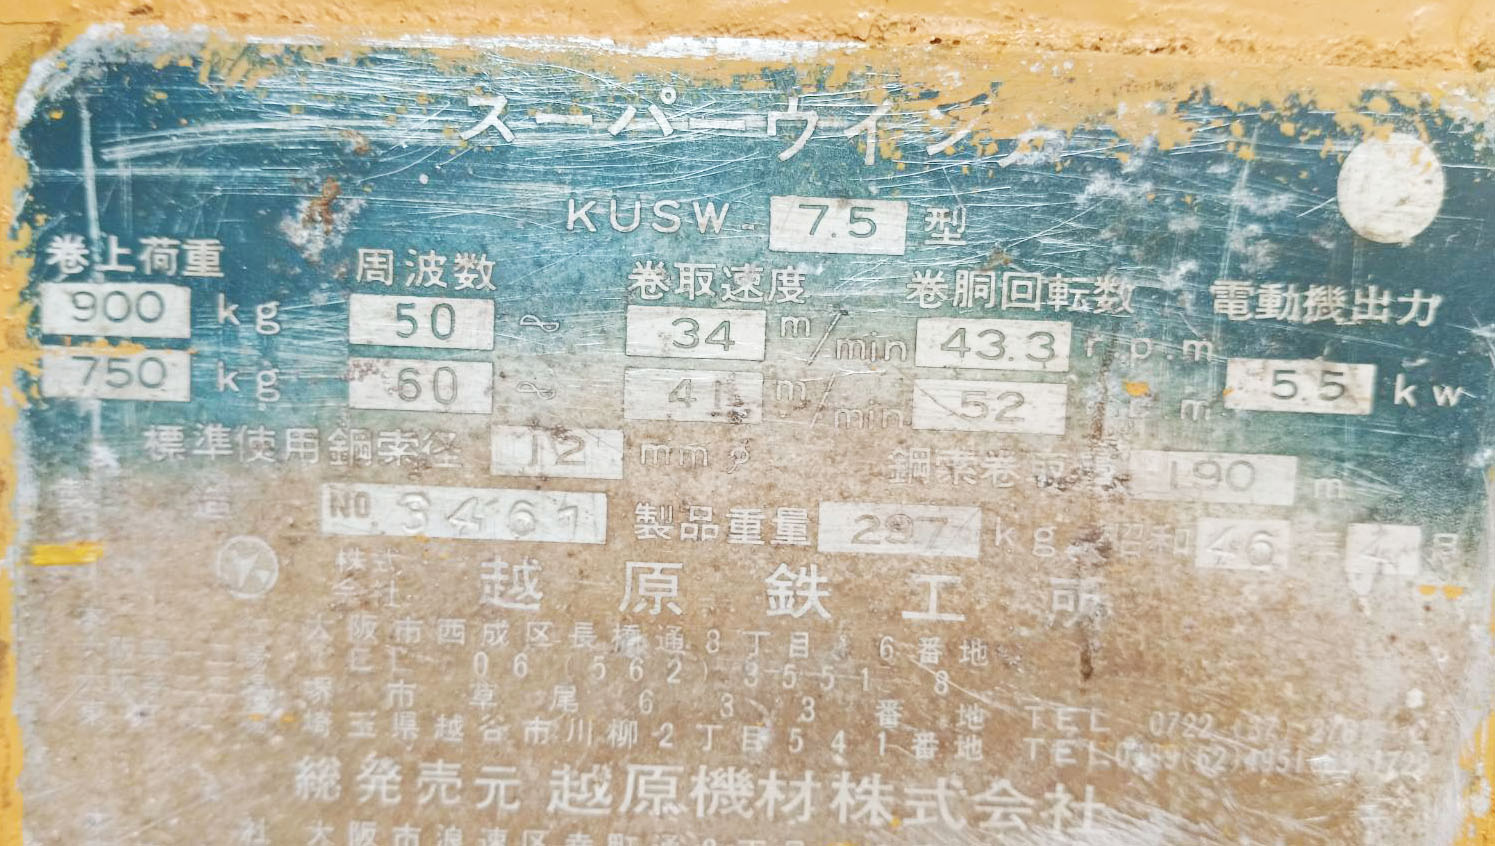 スーパーウインチ
KUSW-7.5型
巻上荷重 周波数 巻取速度 巻胴回転数 電動機出力
900 kg 50 ∾ 34 m/min 43.3 r.p.m
750 kg 60 ∾ 41 m/min 52 r.p.m 5.5 kw
標準使用鋼索径 12 mm 鋼索巻 190 m
造 NO 3461 製品重量 297 kg 昭和 46 年 4 月
株式会社 越原鉄工所
大阪市西成区長橋通8丁目 6番地
06(562)3551 8
市草尾6 3 3番地 TEL 0722
埼玉県越谷市川柳2丁目541番地 TEL
総発売元 越原機材株式会社
社 大阪市浪速区幸町通